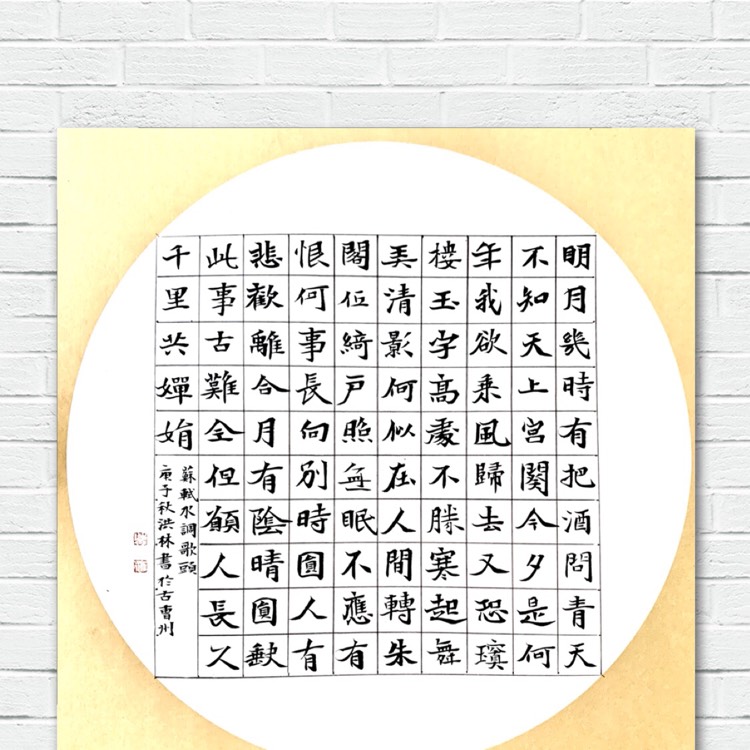 明月幾時有把酒問青天
不知天上宮闕今夕是何
年我欲乘風歸去又恐瓊
樓玉宇高處不勝寒起舞
弄清影何似在人間轉朱
閣低綺戶照無眠不應有
恨何事長向別時圓人有
悲歡離合月有陰晴圓缺
此事古難全但願人長久
千里共嬋娟
蘇軾水調歌頭
庚子秋洪林書於古曹州